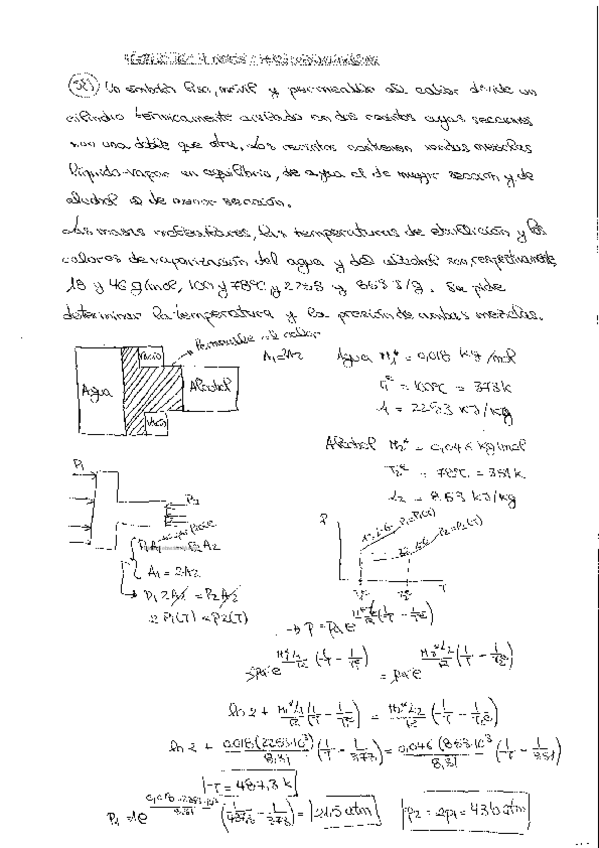 58) Un émbolo liso, móvil y permeable al calor divide un
cilindro térmicamente aislado en dos recintos cuyas secciones
son una doble que otra. Los recintos contienen sendas mezclas
líquido-vapor en equilibrio, de agua el de mayor sección y de
alcohol el de menor sección.
Las masas moleculares, las temperaturas de ebullición y los
calores de vaporización del agua y del alcohol son, respectivamente,
18 y 46 g/mol, 100 y 78ºC y 2253 y 863 J/g. Se pide
determinar la temperatura y la presión de ambas mezclas.
Permeable al calor
Vacío
A₁=2A₂
Agua
Alcohol
Vacío
Agua M₁* = 0,018 kg/mol
T₁* = 100ºC = 373 K
L₁ = 2253 kJ/kg
Alcohol M₂* = 0,046 kg/mol
T₂* = 78ºC = 351 K
L₂ = 863 kJ/kg
P₁
P₂
P₁A₁ = P₂A₂
A₁ = 2A₂
→ P₁ 2A₂ = P₂A₂
2P₁(T) = P₂(T)
P
P₁=P₁(T)
P₂=P₂(T)
T₁*
T₂*
T
→ P = Pa e^{M*L/R (1/T - 1/T*)}
2Pa e^{M₁*L₁/R (1/T - 1/T₁*)} = Pa e^{M₂*L₂/R (1/T - 1/T₂*)}
ln 2 + M₁*L₁/R (1/T - 1/T₁*) = M₂*L₂/R (1/T - 1/T₂*)
ln 2 + 0,018(2253·10³)/8,31 (1/T - 1/373) = 0,046(863·10³)/8,31 (1/T - 1/351)
T = 487,3 K
P₁ = 1e (1/487,3 - 1/373) = 21,5 atm
P₂ = 2P₁ = 43,0 atm